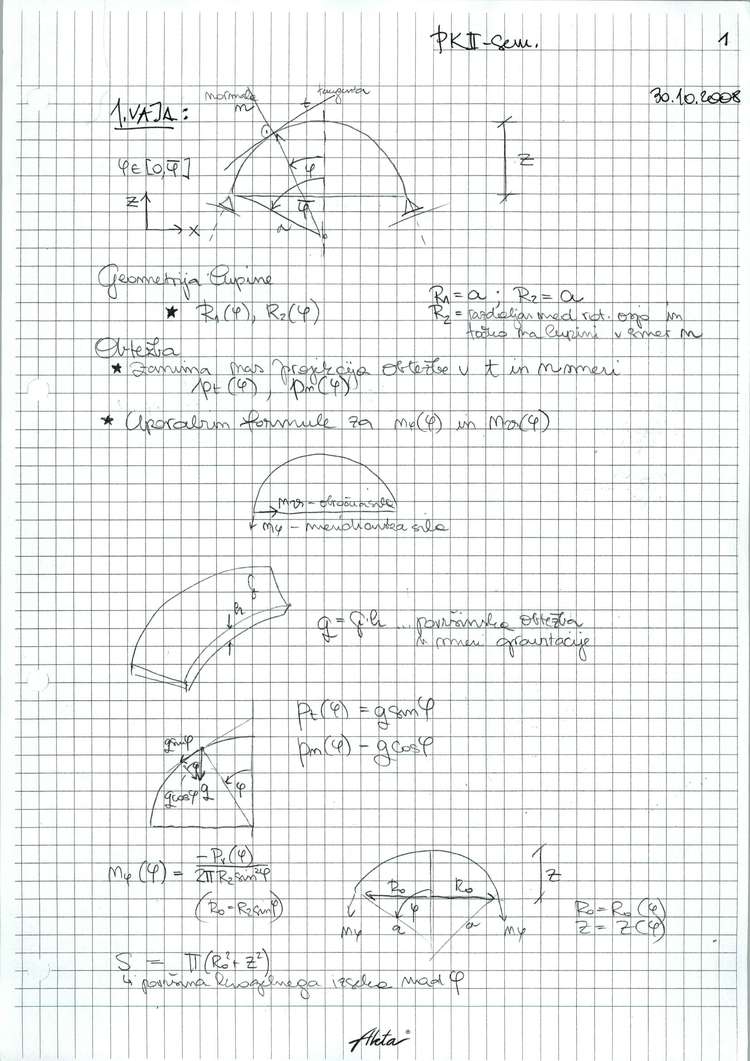 PKII-sem. 1
30.10.2008
1.VAJA:
normala
n
t
tangenta
φ∈[0,φ̄]
z
x
φ
φ̄
a
z
Geometrija lupine
★ R₁(φ), R₂(φ)
R₁ = a ; R₂ = a
R₂ = razdalja med rot. osjo in
točko na lupini v smeri n
Obtežba
★ zanima nas projekcija obtežbe v t in n smeri
pt(φ), pn(φ)
★ Uporabim formule za nφ(φ) in nϑ(φ)
nϑ - obročna sila
nφ - meridianska sila
ρ
h
g = ρ·h ... površinska obtežba
v smeri gravitacije
pt(φ) = g sinφ
pn(φ) - g cosφ
g sinφ
φ
g cosφ
g
φ
nφ(φ) = -Pv(φ) / 2πR₂sin²φ
(R₀ = R₂sinφ)
R₀ R₀
φ
a a
nφ nφ
z
R₀ = R₀(φ)
z = z(φ)
S = π(R₀² + z²)
↳ površina krogelnega izseka nad φ
Aleta